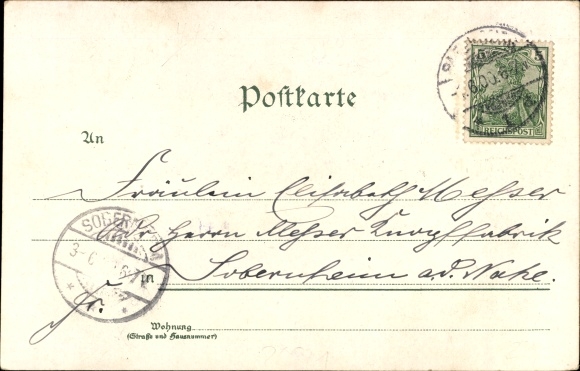 5 5
REICHSPOST
Postkarte
An
Fräulein Elisabeth Messer
Adr Herrn Messer Knopffabrik
SOBERNHEIM
in Sobernheim a.d. Nahe.
Fr.
Wohnung
(Straße und Hausnummer)